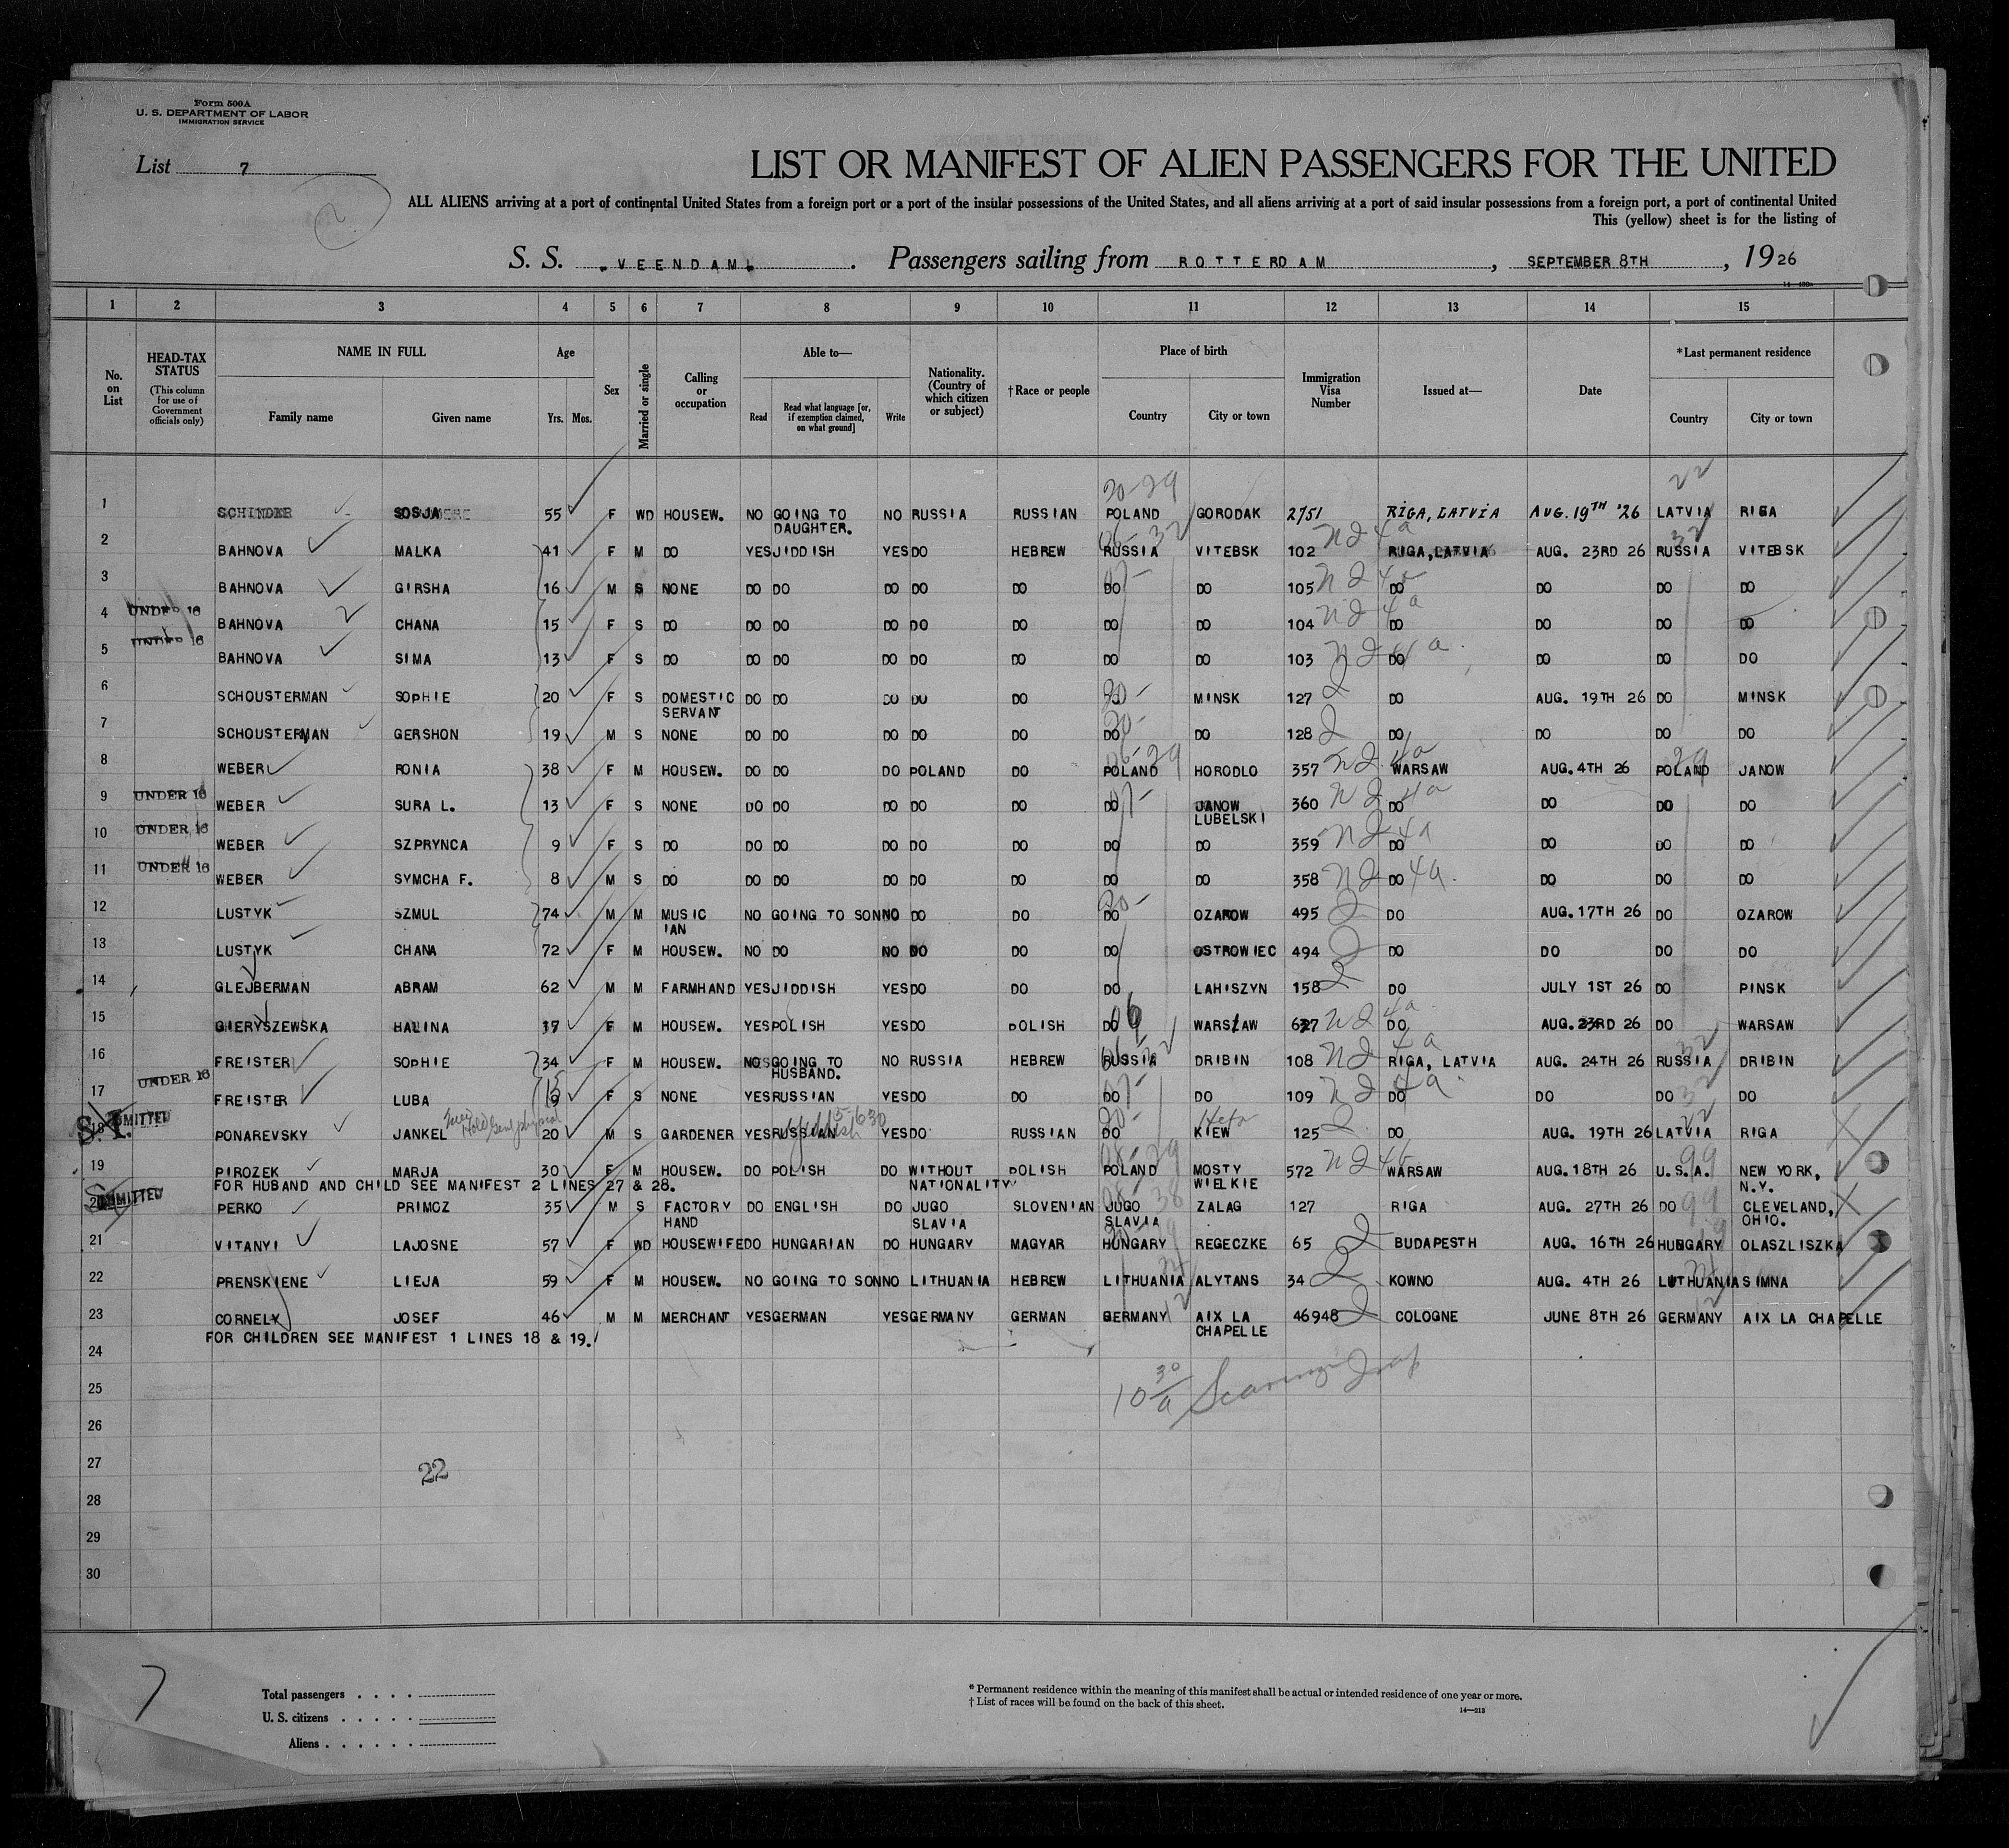 Form 500A
U. S. DEPARTMENT OF LABOR
IMMIGRATION SERVICE
List 7
LIST OR MANIFEST OF ALIEN PASSENGERS FOR THE UNITED
ALL ALIENS arriving at a port of continental United States from a foreign port or a port of the insular possessions of the United States, and all aliens arriving at a port of said insular possessions from a foreign port, a port of continental United
This (yellow) sheet is for the listing of
S. S. VEENDAM. Passengers sailing from ROTTERDAM, SEPTEMBER 8TH, 1926
1 2 3 4 5 6 7 8 9 10 11 12 13 14 15
No. on List
HEAD-TAX STATUS (This column for use of Government officials only)
NAME IN FULL Family name Given name
Age Yrs. Mos.
Sex
Married or single
Calling or occupation
Able to— Read Read what language [or, if exemption claimed, on what ground] Write
Nationality. (Country of which citizen or subject)
†Race or people
Place of birth Country City or town
Immigration Visa Number
Issued at—
Date
*Last permanent residence Country City or town
20-29 22
1 SCHINDER SOSJA 55 F WD HOUSEW. NO GOING TO DAUGHTER. NO RUSSIA RUSSIAN POLAND GORODAK 2751 RIGA, LATVIA AUG. 19TH '26 LATVIA RIGA
2 BAHNOVA MALKA 41 F M DO YES JIDDISH YES DO HEBREW RUSSIA VITEBSK 102 RIGA, LATVIA AUG. 23RD 26 RUSSIA VITEBSK
3 BAHNOVA GIRSHA 16 M S NONE DO DO DO DO DO DO DO 105 DO DO DO DO
4 UNDER 16 BAHNOVA CHANA 15 F S DO DO DO DO DO DO DO DO 104 DO DO DO DO
5 UNDER 16 BAHNOVA SIMA 13 F S DO DO DO DO DO DO DO DO 103 DO DO DO DO
6 SCHOUSTERMAN SOPHIE 20 F S DOMESTIC SERVANT DO DO DO DO DO MINSK 127 DO AUG. 19TH 26 DO MINSK
7 SCHOUSTERMAN GERSHON 19 M S NONE DO DO DO DO DO DO DO 128 DO DO DO DO
8 WEBER RONIA 38 F M HOUSEW. DO DO DO POLAND DO POLAND HORODLO 357 WARSAW AUG. 4TH 26 POLAND JANOW
9 UNDER 16 WEBER SURA L. 13 F S NONE DO DO DO DO DO DO JANOW LUBELSKI 360 DO DO DO DO
10 UNDER 16 WEBER SZPRYNCA 9 F S DO DO DO DO DO DO DO DO 359 DO DO DO DO
11 UNDER 16 WEBER SYMCHA F. 8 M S DO DO DO DO DO DO DO DO 358 DO DO DO DO
12 LUSTYK SZMUL 74 M M MUSICIAN NO GOING TO SON NO DO DO DO OZAROW 495 DO AUG. 17TH 26 DO OZAROW
13 LUSTYK CHANA 72 F M HOUSEW. NO DO NO DO DO DO OSTROWIEC 494 DO DO DO DO
14 GLEJBERMAN ABRAM 62 M M FARMHAND YES JIDDISH YES DO DO DO LAHISZYN 158 DO JULY 1ST 26 DO PINSK
15 GIERYSZEWSKA HALINA 37 F M HOUSEW. YES POLISH YES DO POLISH DO WARSAW 627 DO AUG. 23RD 26 DO WARSAW
16 FREISTER SOPHIE 34 F M HOUSEW. NO GOING TO HUSBAND. NO RUSSIA HEBREW RUSSIA DRIBIN 108 RIGA, LATVIA AUG. 24TH 26 RUSSIA DRIBIN
17 UNDER 16 FREISTER LUBA F S NONE YES RUSSIAN YES DO DO DO DO 109 DO DO DO DO
18 S.I. ADMITTED PONAREVSKY JANKEL 20 M S GARDENER YES RUSSIAN Yiddish YES DO RUSSIAN DO KIEW 125 DO AUG. 19TH 26 LATVIA RIGA
19 PIROZEK MARJA 30 F M HOUSEW. DO POLISH DO WITHOUT NATIONALITY POLISH POLAND MOSTY WIELKIE 572 WARSAW AUG. 18TH 26 U.S.A. NEW YORK, N.Y.
FOR HUBAND AND CHILD SEE MANIFEST 2 LINES 27 & 28.
20 ADMITTED PERKO PRIMOZ 35 M S FACTORY HAND DO ENGLISH DO JUGO SLAVIA SLOVENIAN JUGO SLAVIA ZALAG 127 RIGA AUG. 27TH 26 DO CLEVELAND, OHIO.
21 VITANYI LAJOSNE 57 F WD HOUSEWIFE DO HUNGARIAN DO HUNGARY MAGYAR HUNGARY REGECZKE 65 BUDAPESTH AUG. 16TH 26 HUNGARY OLASZLISZKA
22 PRENSKIENE LIEJA 59 F M HOUSEW. NO GOING TO SON NO LITHUANIA HEBREW LITHUANIA ALYTANS 34 KOWNO AUG. 4TH 26 LITHUANIA SIMNA
23 CORNELY JOSEF 46 M M MERCHANT YES GERMAN YES GERMANY GERMAN GERMANY AIX LA CHAPELLE 46948 COLOGNE JUNE 8TH 26 GERMANY AIX LA CHAPELLE
FOR CHILDREN SEE MANIFEST 1 LINES 18 & 19.
24
25
26
27
22
28
29
30
7
Total passengers
U. S. citizens
Aliens
* Permanent residence within the meaning of this manifest shall be actual or intended residence of one year or more.
† List of races will be found on the back of this sheet.
14—213